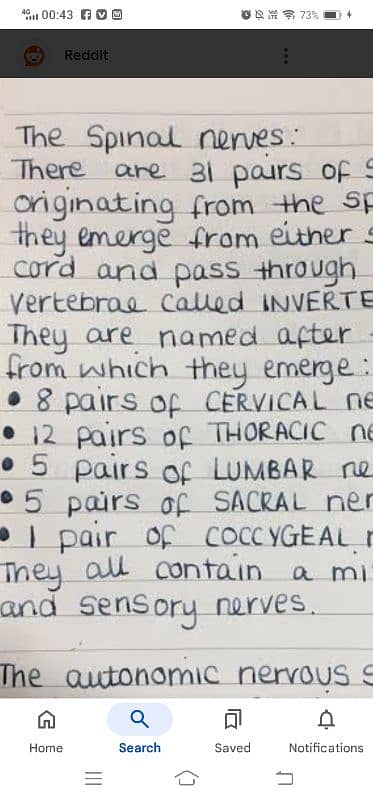 4G 00:43 73%
Reddit
The Spinal nerves:
There are 31 pairs of
originating from the
they emerge from either
cord and pass through
vertebrae called INVERTE
They are named after
from which they emerge:
• 8 pairs of CERVICAL ne
• 12 pairs of THORACIC ne
• 5 pairs of LUMBAR ne
• 5 pairs of SACRAL ner
• 1 pair of COCCYGEAL
They all contain a mi
and sensory nerves.
The autonomic nervous
Home Search Saved Notifications